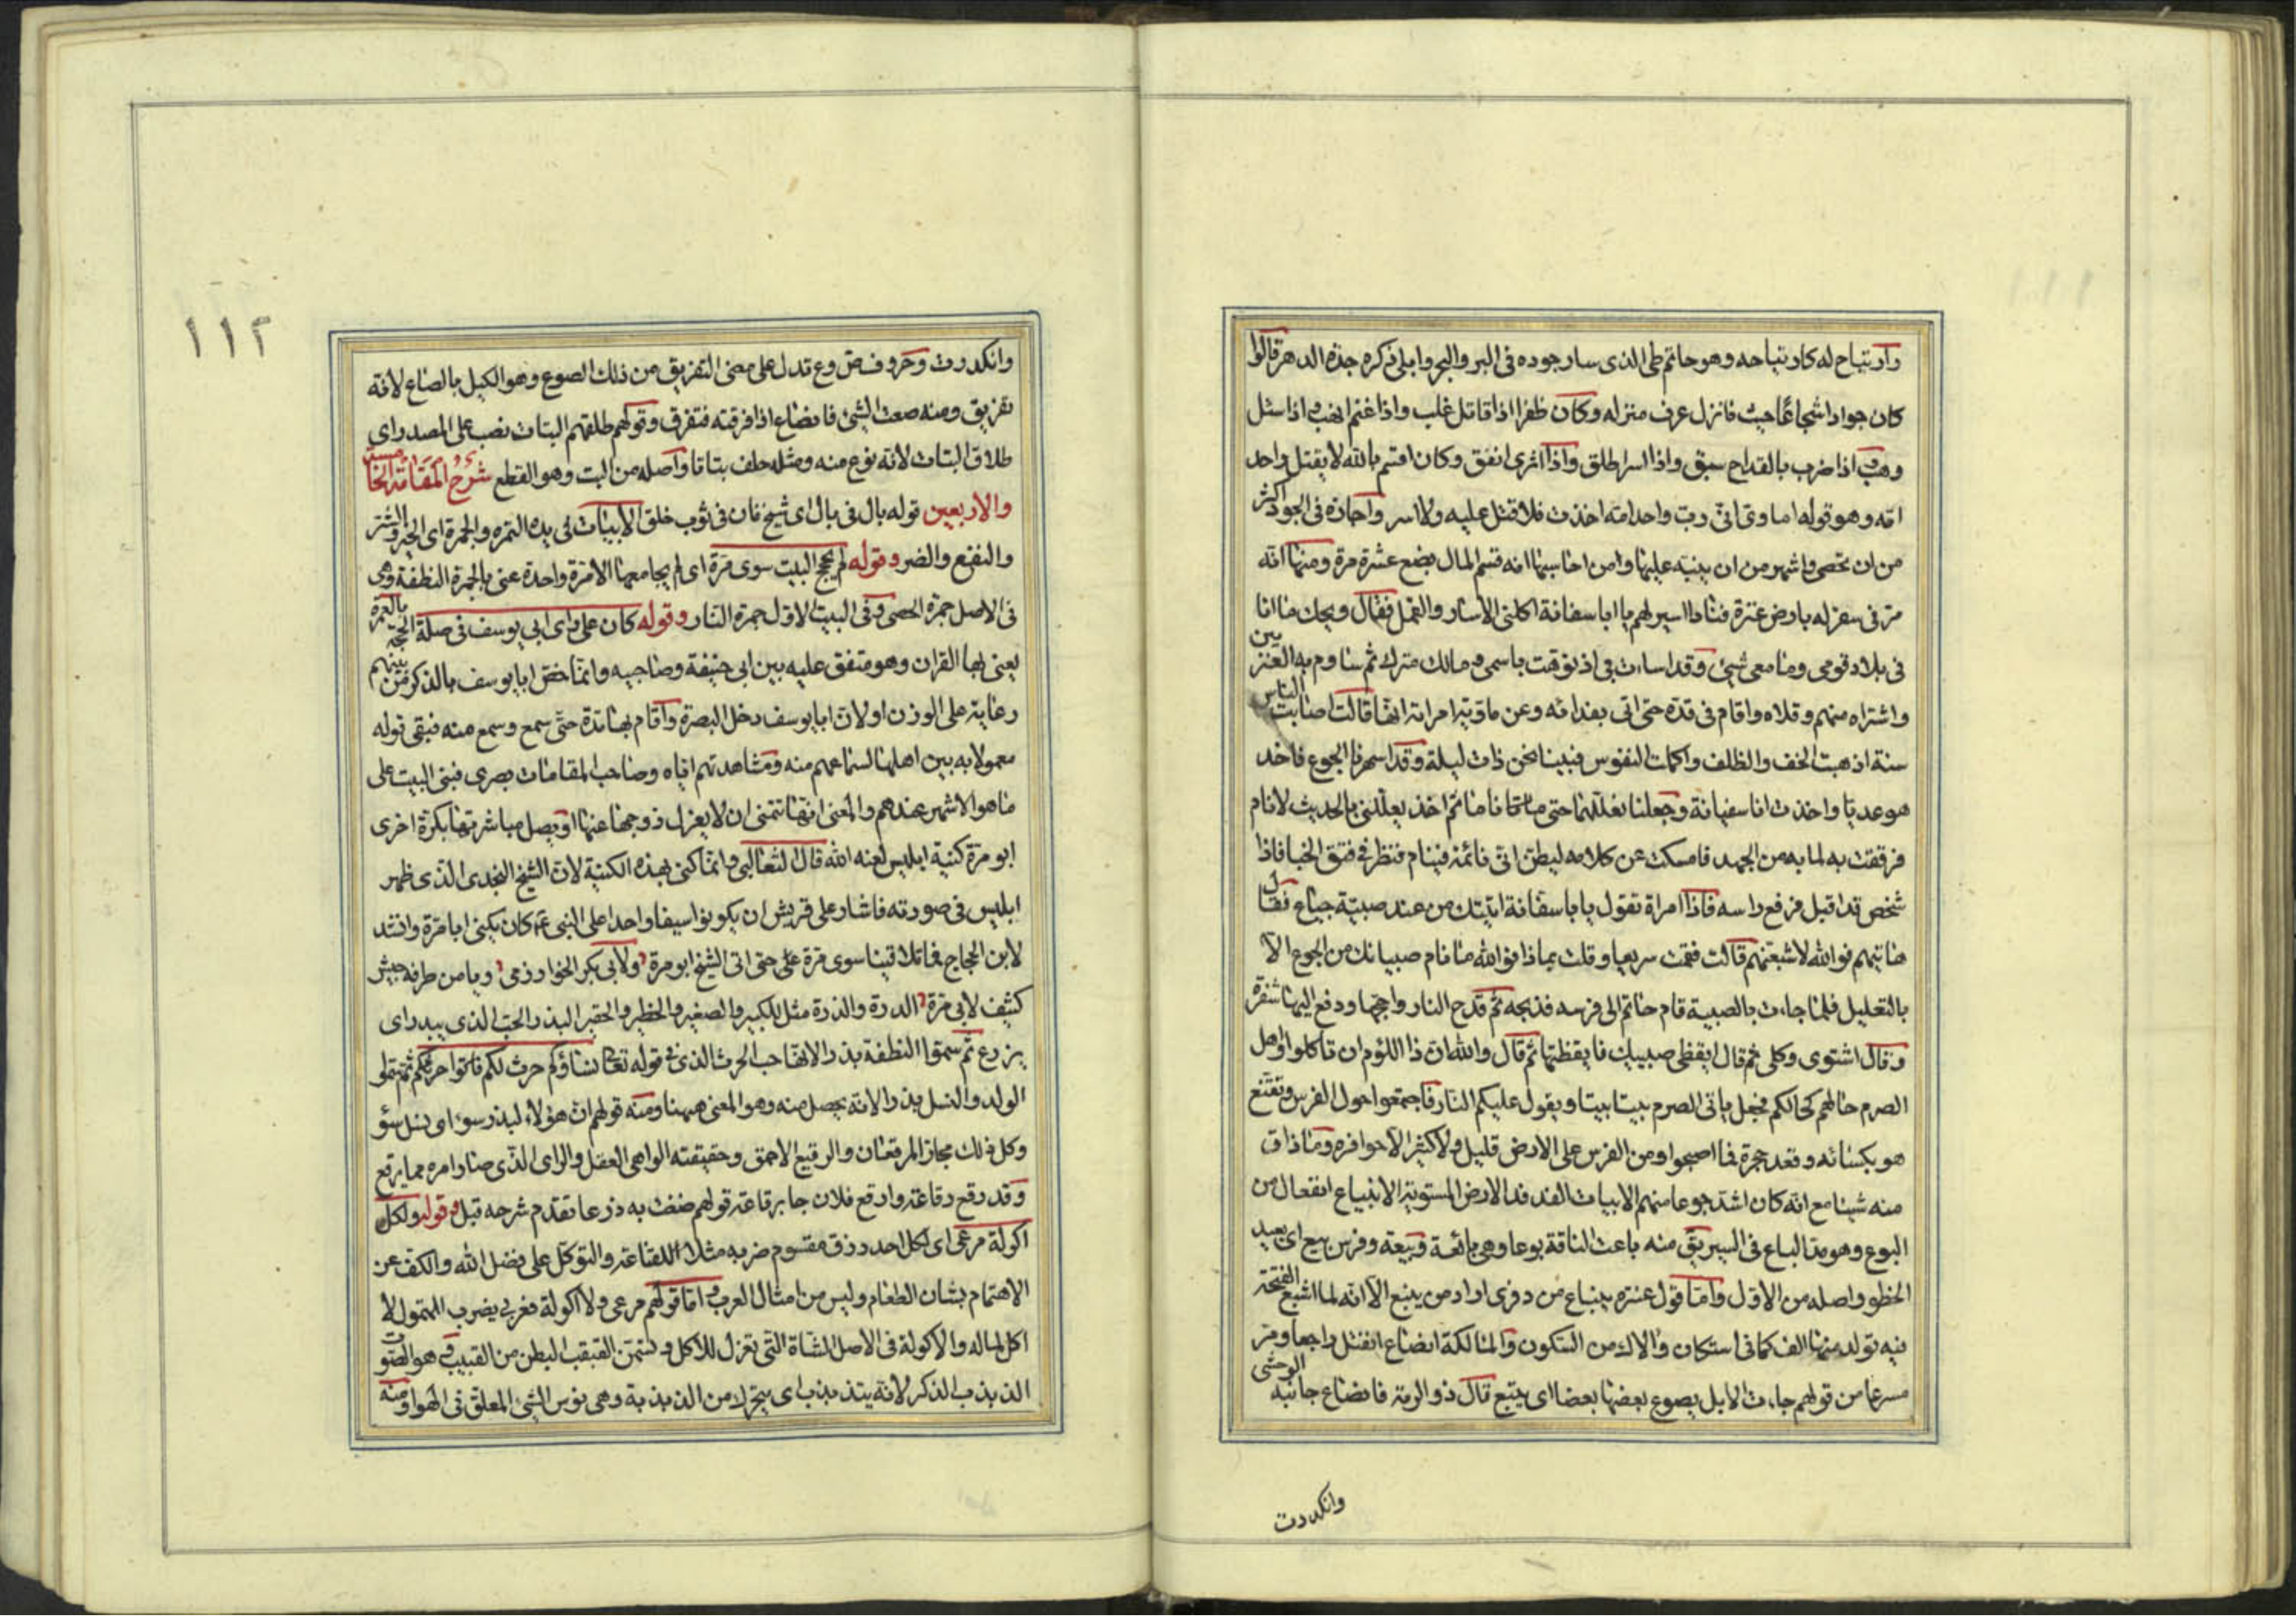 وارتياح له كارتياحه وهو حاتم طى الذى سار جوده فى البر والبحر وابلى ذكره جدّة الدهر قالوا
كان جوادا شجاعا حيث فانزل عرف منزله وكان ظفرا اذا قاتل غلب واذا غنم انهب واذا سئل
وهب اذا ضرب بالقداح سبق واذا اسر اطلق واذا اثرى انفق وكان اقسم بالله لا يقتل واحد
امّه وهو قوله اماوى انّى ربّ واحد امّه اخذت فلا قتل عليه ولا اسر واخباره فى الجود اكثر
من ان تحصى واشهر من ان ينبّه عليها وامن احاسنها انه قسم المال بضع عشرة مرة ومنها انّه
مرّ فى سفر له بارض عنزة فناداه اسير لهم يا ابا سفانة اكلنى الاسار والقمل فقال ويحك ما انا
فى بلاد قومى وما معى شيئ وقد اسات بى اذ نوّهت باسمى ومالك مترك ثم ساوم به العنزيين
واشتراه منهم وخلاه واقام فى قدّه حتى اتى بفدائه وعن ماوية امراته انها قالت اصابت الناس
سنة اذهبت الخف والظلف واكلت النفوس فبينا نحن ذات ليلة وقد اسهرنا الجوع فاخذ
هو عديا واخذت انا سفانة وجعلنا نعللهما حتى ناما ثم اخذ يعللنى بالحديث لانام
فرققت به لما به من الجهد فامسكت عن كلامه ليظن انى نائمة فينام فنظر فى فتق الخبا فاذا
شخص قد اقبل فرفع راسه فاذا امراة تقول يابا سفانة اتيتك من عند صبية جياع فقال
هاتيهم فوالله لاشبعنهم قالت فقمت سريعا وقلت بماذا فوالله ما نام صبيانك من الجوع الا
بالتعليل فلما جاءت بالصبية قام حاتم الى فرسه فذبحه ثم قدح النار واججها ودفع اليها شفرة
وقال اشتوى وكلى ثم قال ايقظى صبيك فايقظتها ثم قال والله ان ذا اللؤم ان تاكلوا واهل
الصرم حالهم كحالكم فجعل ياتى الصرم بيتا بيتا ويقول عليكم النار فاجتمعوا حول الفرس وتقنّع
هو بكسائه وقعد حجرة فما اصبحوا ومن الفرس على الارض قليل ولا كثير الا حوافره وما ذاق
منه شيئا مع انه كان اشد جوعا منهم الابيات الفدفد الارض المستوية الانبياع انفعال من
البوع وهو مد الباع فى السير يق منه باعت الناقة بوعا وهى بائعة وبيّعة وفرس بيع اى بعيد
الخطو واصله من الاول وامّا قول عنترة ينباع من دفرى اراد من ينبع الا انه لما اشبع الفتحة
فيه تولد منها الف كما فى استكان والاك من السكون والمالكة انصاع انفتل راجعا ومر
مسرعا من قولهم جاءت الابل يصوع بعضها بعضا اى يتبع قال ذو الرمة فانصاع جانبه الوحشى
وانكدرت
١١٢
وانكدرت وحروف ص وع تدل على معنى التفريق من ذلك الصوع وهو الكيل بالصاع لانه
تفريق ومنه صعت الشئ فانصاع اذا فرقته فتفرق وقولهم طلقهم البتات نصب على المصدر اى
طلاق البتات لانه نوع منه ومثله حلف بتاتا واصله من البت وهو القطع شَرْحُ المَقَامَةِ الخامسة
والاربعين قوله بال فى بال اى شيخ فان فى ثوب خلق الابيات لى يده التمره والجمرة اى الخير والشر
والنفع والضر وقوله لم يحج البيت سوى مرّة اى لم يجامعها الا مرّة واحدة عنى بالجمرة النطفة وهى
فى الاصل جمرة الحصى وفى البيت الاول جمرة النار وقوله كان على راى ابى يوسف فى صلة الحجة بالعمره
يعنى بها القران وهو متفق عليه بين ابى حنيفة وصاحبيه وانّما خصّ ابا يوسف بالذكر من بينهم
رعاية على الوزن او لان ابا يوسف دخل البصرة واقام بها مدّة حتّى سمع وسمع منه فبقى قوله
معمولا به بين اهلها لسماعهم منه ومشاهدتهم اياه وصاحب المقامات بصرى فبنى البيت على
ما هو الاشهر عندهم والمعنى انّها تتمنى ان لا يعزل زوجها عنها او يصل مباشرتها بكرّة اخرى
ابو مرّة كنية ابليس لعنه الله قال الثعالبى وانما كنى بهذه الكنية لان الشيخ النجدى الذى ظهر
ابليس فى صورته فاشار على قريش ان يكونوا سيفا واحدا على النبى عم كان يكنى ابا مرّة وانشد
لابن الحجاج فما تلاقينا سوى مرّة على حتى اتى الشيخ ابو مرة ولابى بكر الخوارزمى ويا من طرفه جيش
كثيف لابى مرّة الدرة والذرة مثل للكبير والصغير والخطير والحقير البذر الحب الذى يبدر اى
يزرع ثم سموا النطفة بذرا لانها حب الحرث الذى فى قوله تعا نساؤكم حرث لكم فاتوا حرثكم ثم سموا
الولد والنسل بذرا لانه يحصل منه وهو المعنى ههنا ومنه قولهم ان هؤلاء لبذر سوء اى نسل سوء
وكل ذلك مجاز المرقعان والرقيع الاحمق وحقيقته الواهى العقل والراى الّذى صار امره مما يرقع
وقد رقع رقاعة وارقع فلان جا برقاعة قولهم ضقت به ذرعا تقدم شرحه قبل وقوله ولكل
اكولة مرعى اى لكل احد رزق مقسوم ضربه مثلا للقناعة والتوكل على فضل الله والكف عن
الاهتمام بشان الطعام وليس من امثال العرب واما قولهم مرعى ولا اكولة فعربى يضرب المتمول لا
اكل لماله والاكولة فى الاصل الشاة التى تعزل للاكل وتسمن القبقب البطن من القبيب وهو الصوت
الذبذب الذكر لانه يتذبذب اى يتحرك من الذبذبة وهى نوس الشئ المعلق فى الهوا ومنه